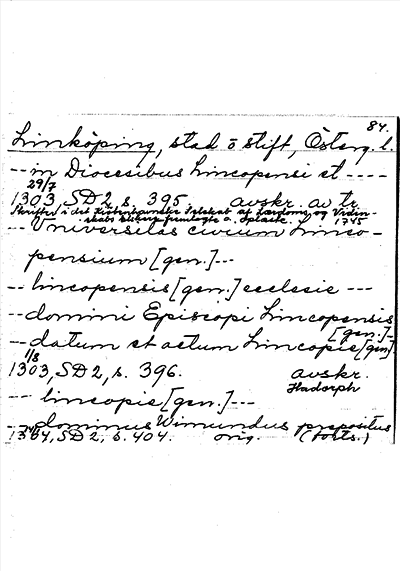 84.
Linköping, stad o stift, Österg. l.
-- in Diocesibus Lincopensi et ----
29/7
1303, SD 2, s. 395 avskr. av tr.
Skrifter i det Kiøbenhavnske Selskab af Lærdoms og Viden-
skabs Elskere fremlagte o. oplæste. 1745
-- Universitas civium Linco-
pensium [gen.] --
-- lincopensis [gen.] ecclesie ---
-- domini Episcopi Lincopensis
[gen.] -
-- datum et actum Lincopie [gen].
1/8
1303, SD 2, s. 396. avskr.
Hadorph
-- lincopie [gen.] ---
-- dominus Wimundus prepositus
SD 2, s. 404. orig. (forts.)